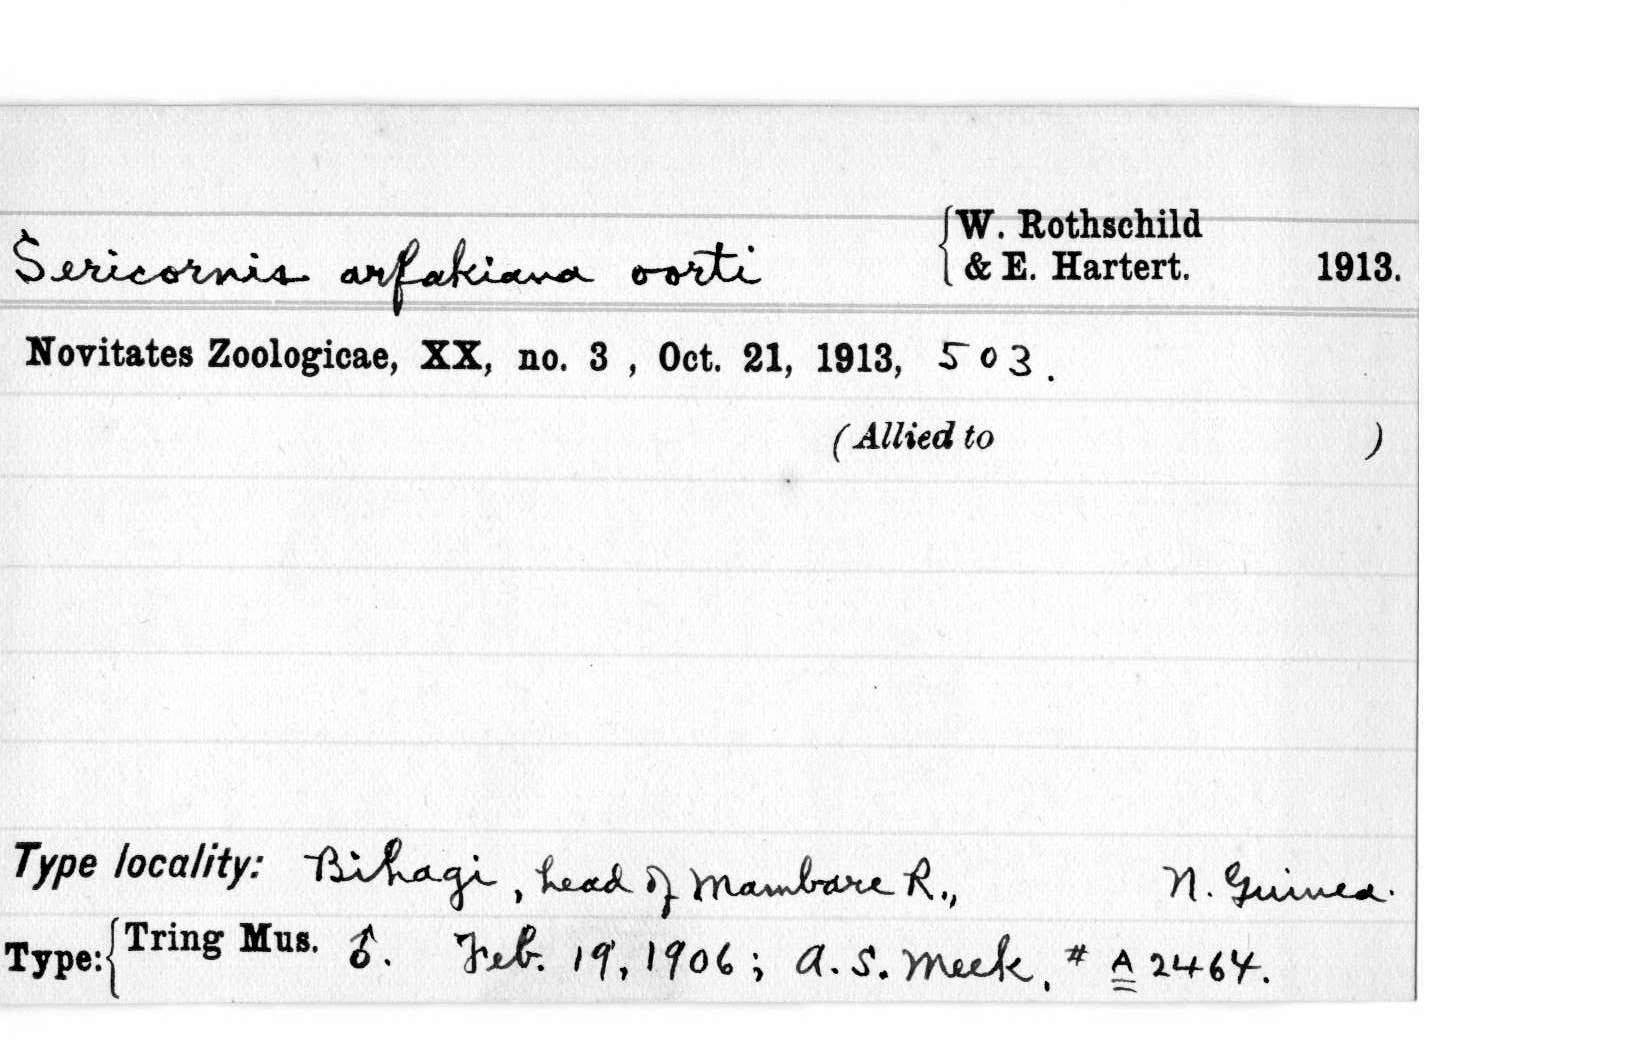 Sericornis arfakiana oorti {W. Rothschild & E. Hartert. 1913.
Novitates Zoologicae, XX, no. 3 , Oct. 21, 1913, 503.
(Allied to )
Type locality: Bihagi, head of Mambare R., N. Guinea.
Type: {Tring Mus. ♂. Feb. 19, 1906; A. S. Meek, # A 2464.